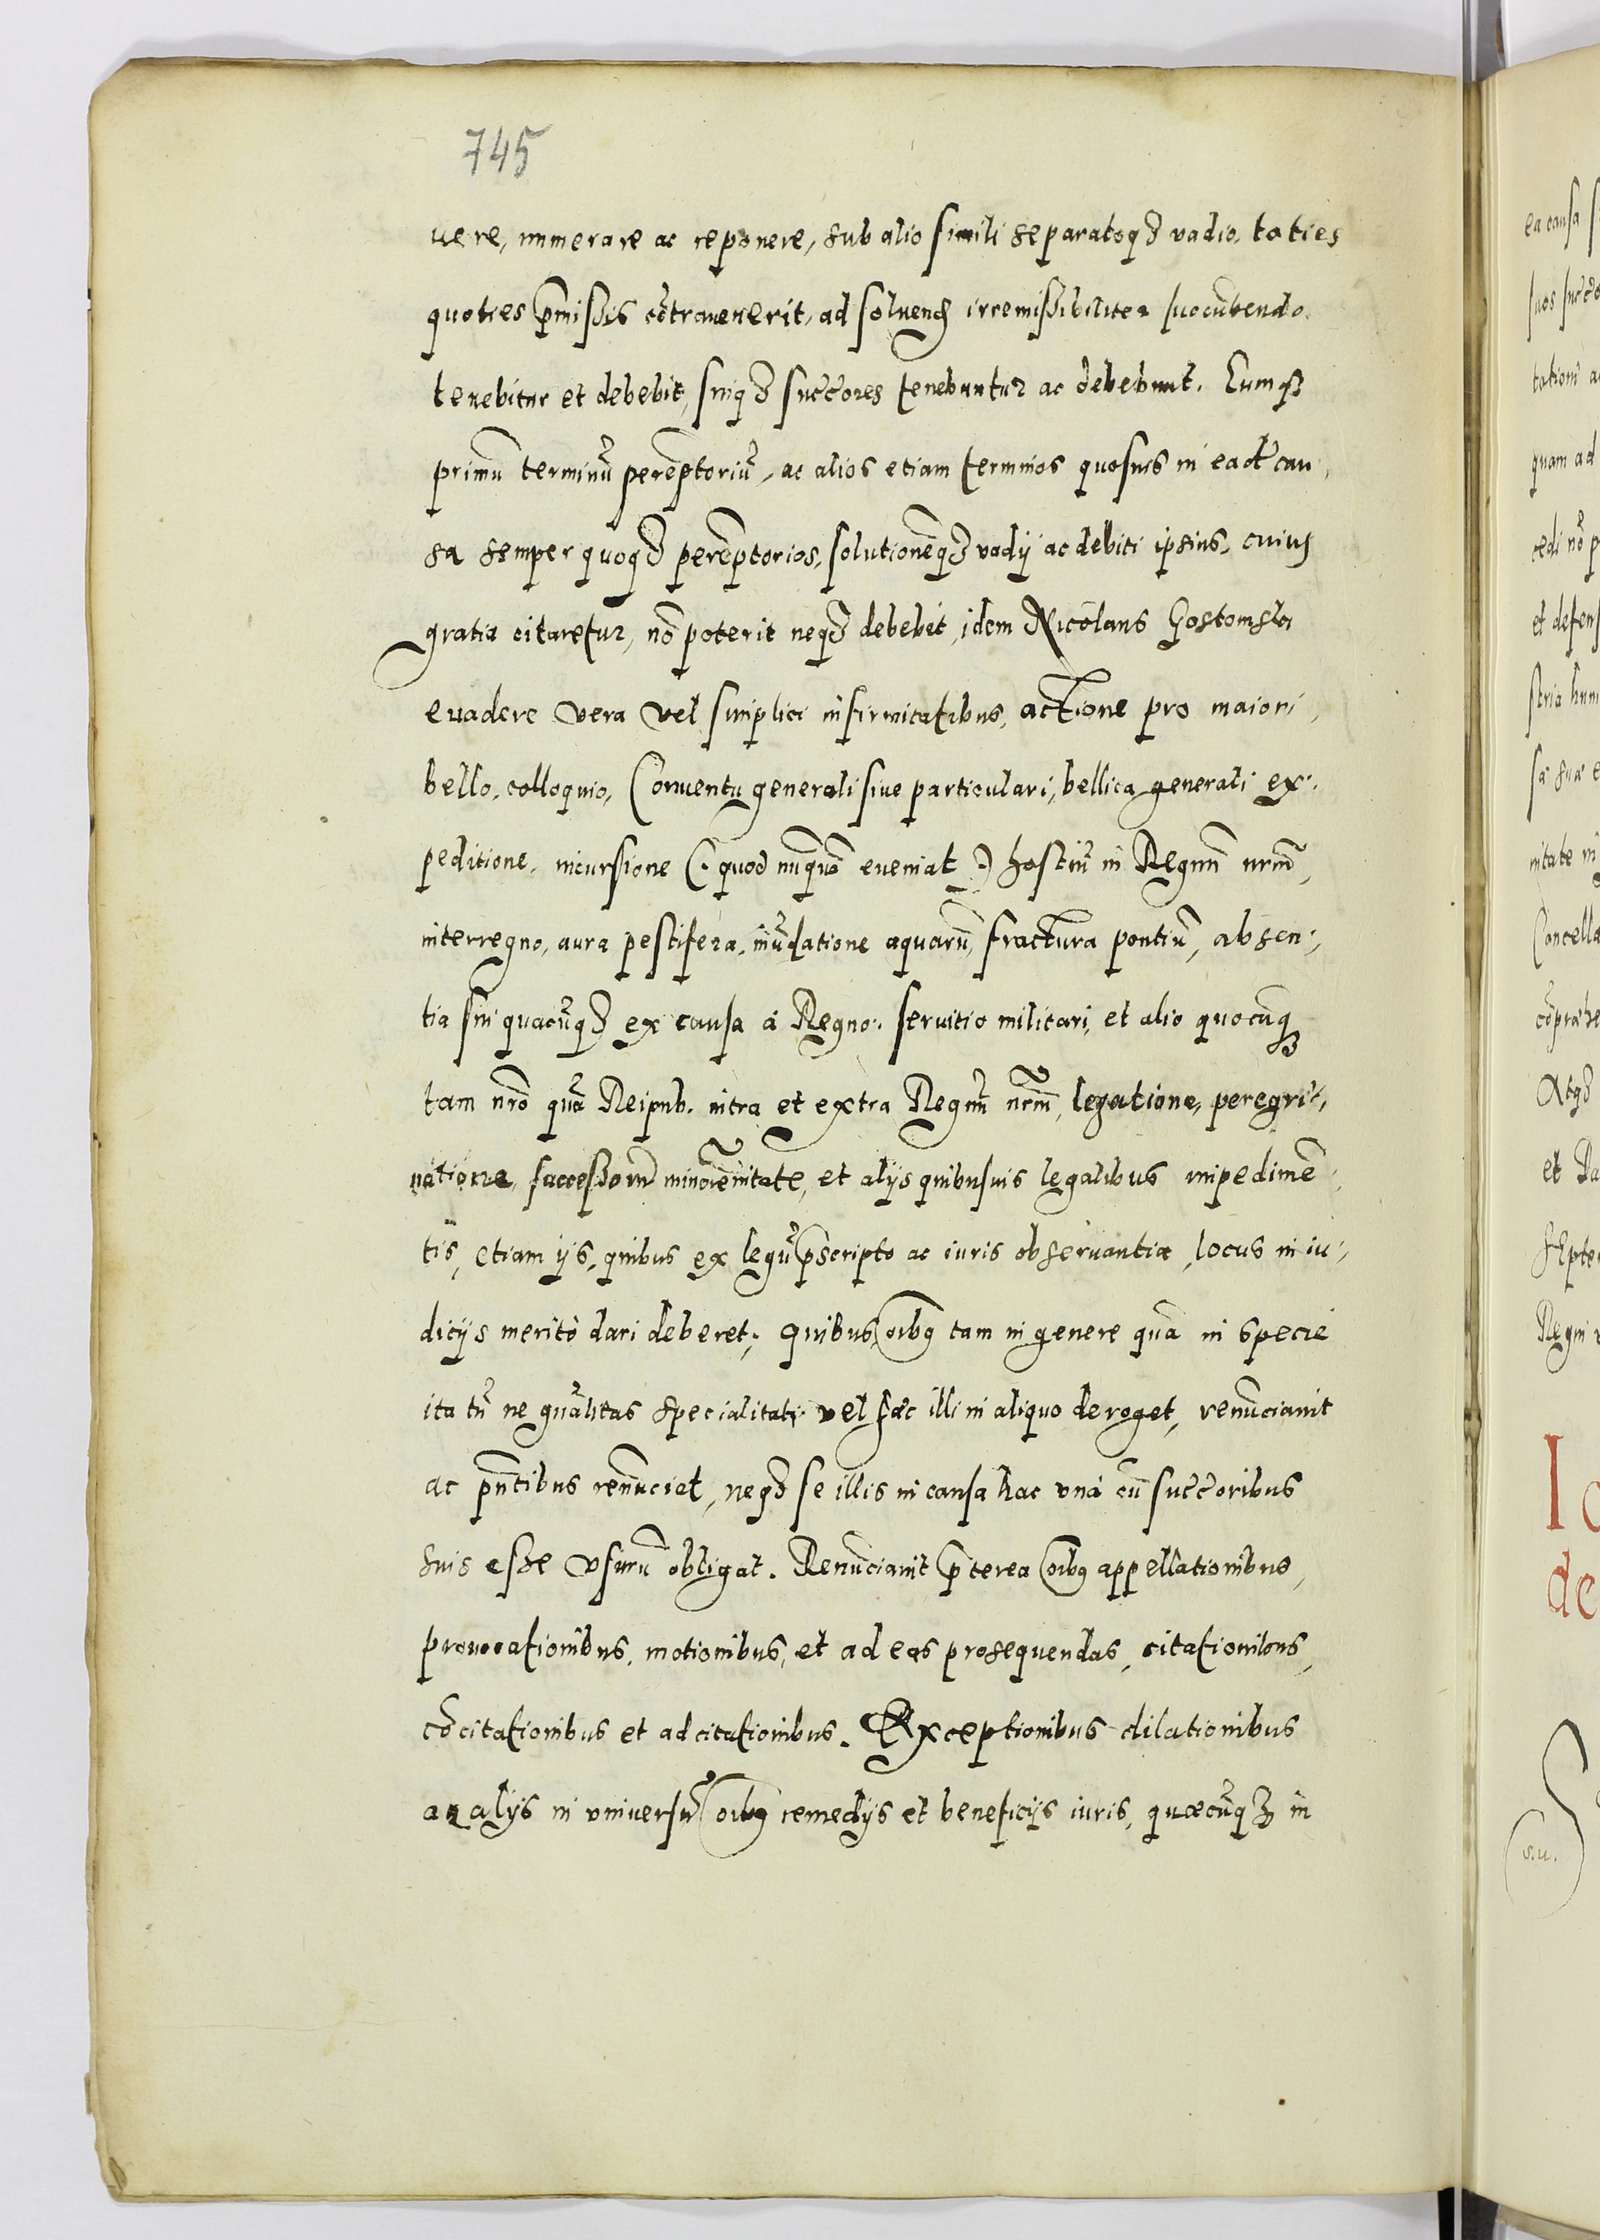 745
uere, numerare ac reponere, sub alio simili separatoqȝ vadio, toties
quoties p̃missis cõtrauenerit, ad soluend irremissibiliter succũbendo.
tenebitur et debebit, suiqȝ succ̃ores tenebuntur ac debebunt. Eumqȝ
primũ terminũ perẽptoriũ, ac alios etiam terminos quosuis in ead̃ cau,
sa semper quoqȝ perẽptorios, solutionẽqȝ vadij ac debiti ipsius, cuius
gratia citaretur, nõ poterit neqȝ debebit, idem Nicolaus Gostomski
euadere vera vel simplici infirmitatibus, actione pro maiori,
bello, colloquio, Conuentu generali siue particulari, bellica generali ex:
peditione, incursione (. quod nũquã eueniat .) hostiũ in Regnũ nrm̃,
interregno, aura pestifera, inũdatione aquarũ, fractura pontiũ, absen:,
tia sui quacũqȝ ex causa à Regno: seruitio militari, et alio quocũqȝ
tam nrõ quã Reipub. intra et extra Regnũ nrm̃, legatione, peregri:,
natione, successorũ minorẽnitate, et alijs quibusuis legalibus impedimẽ,
tis, etiam ijs, quibus ex legũ p̃scripto ac iuris obseruantia, locus in iu:,
dicijs meritò dari deberet; quibus oĩbg tam in genere quã in specie
ita tñ ne gñalitas specialitati vel hæc illi in aliquo deroget, renũciauit
ac pñtibus renũciat, neqȝ se illis in causa hac vnà cũ succ̃oribus
suis esse vsurũ obligat. Renũciauit p̃terea oĩbg appellationibus,
prouocationibus, motionibus, et ad eas prosequendas, citationibus,
cõcitationibus et adcitationibus. Exceptionibus dilationibus
ac alijs in vniuersũ oĩbg remedijs et beneficijs iuris, quæcũqȝ in